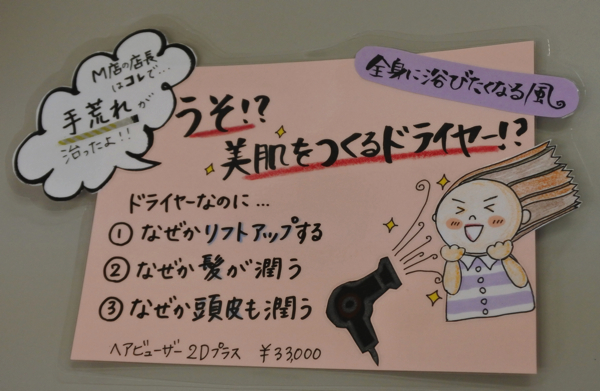 M店の店長
はコレで…
手荒れが
治ったよ!!
全身に浴びたくなる風
うそ!?
美肌をつくるドライヤー!?
ドライヤーなのに…
① なぜかリフトアップする
② なぜか髪が潤う
③ なぜか頭皮も潤う
ヘアビューザー 2Dプラス ¥33,000